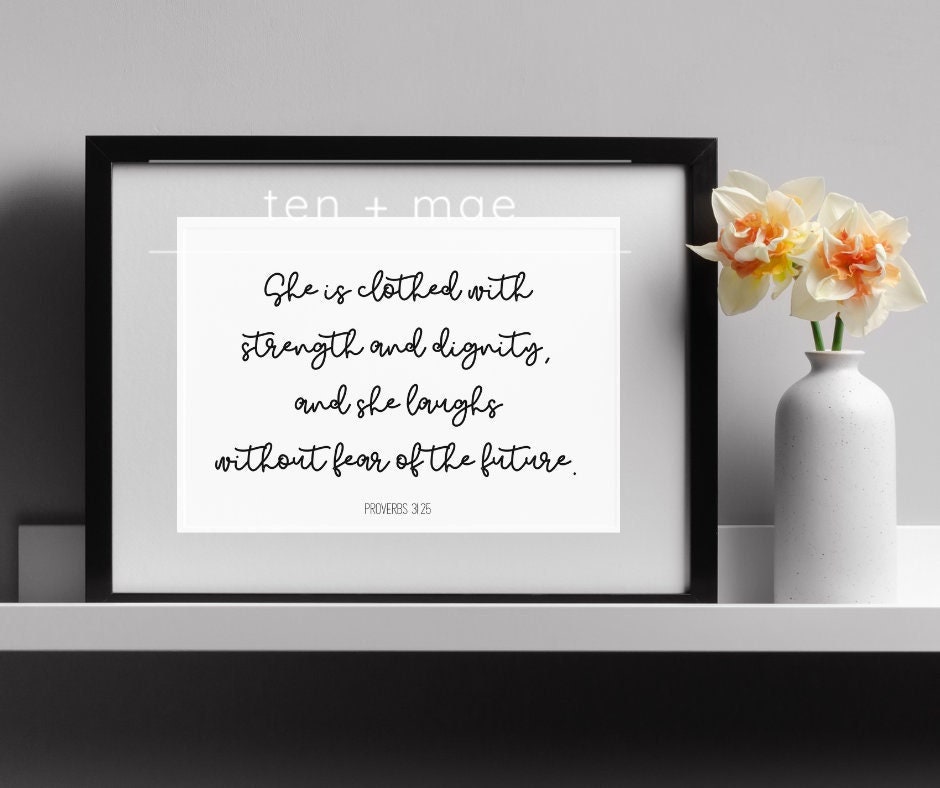 ten + mae
She is clothed with
strength and dignity,
and she laughs
without fear of the future.
PROVERBS 31 25